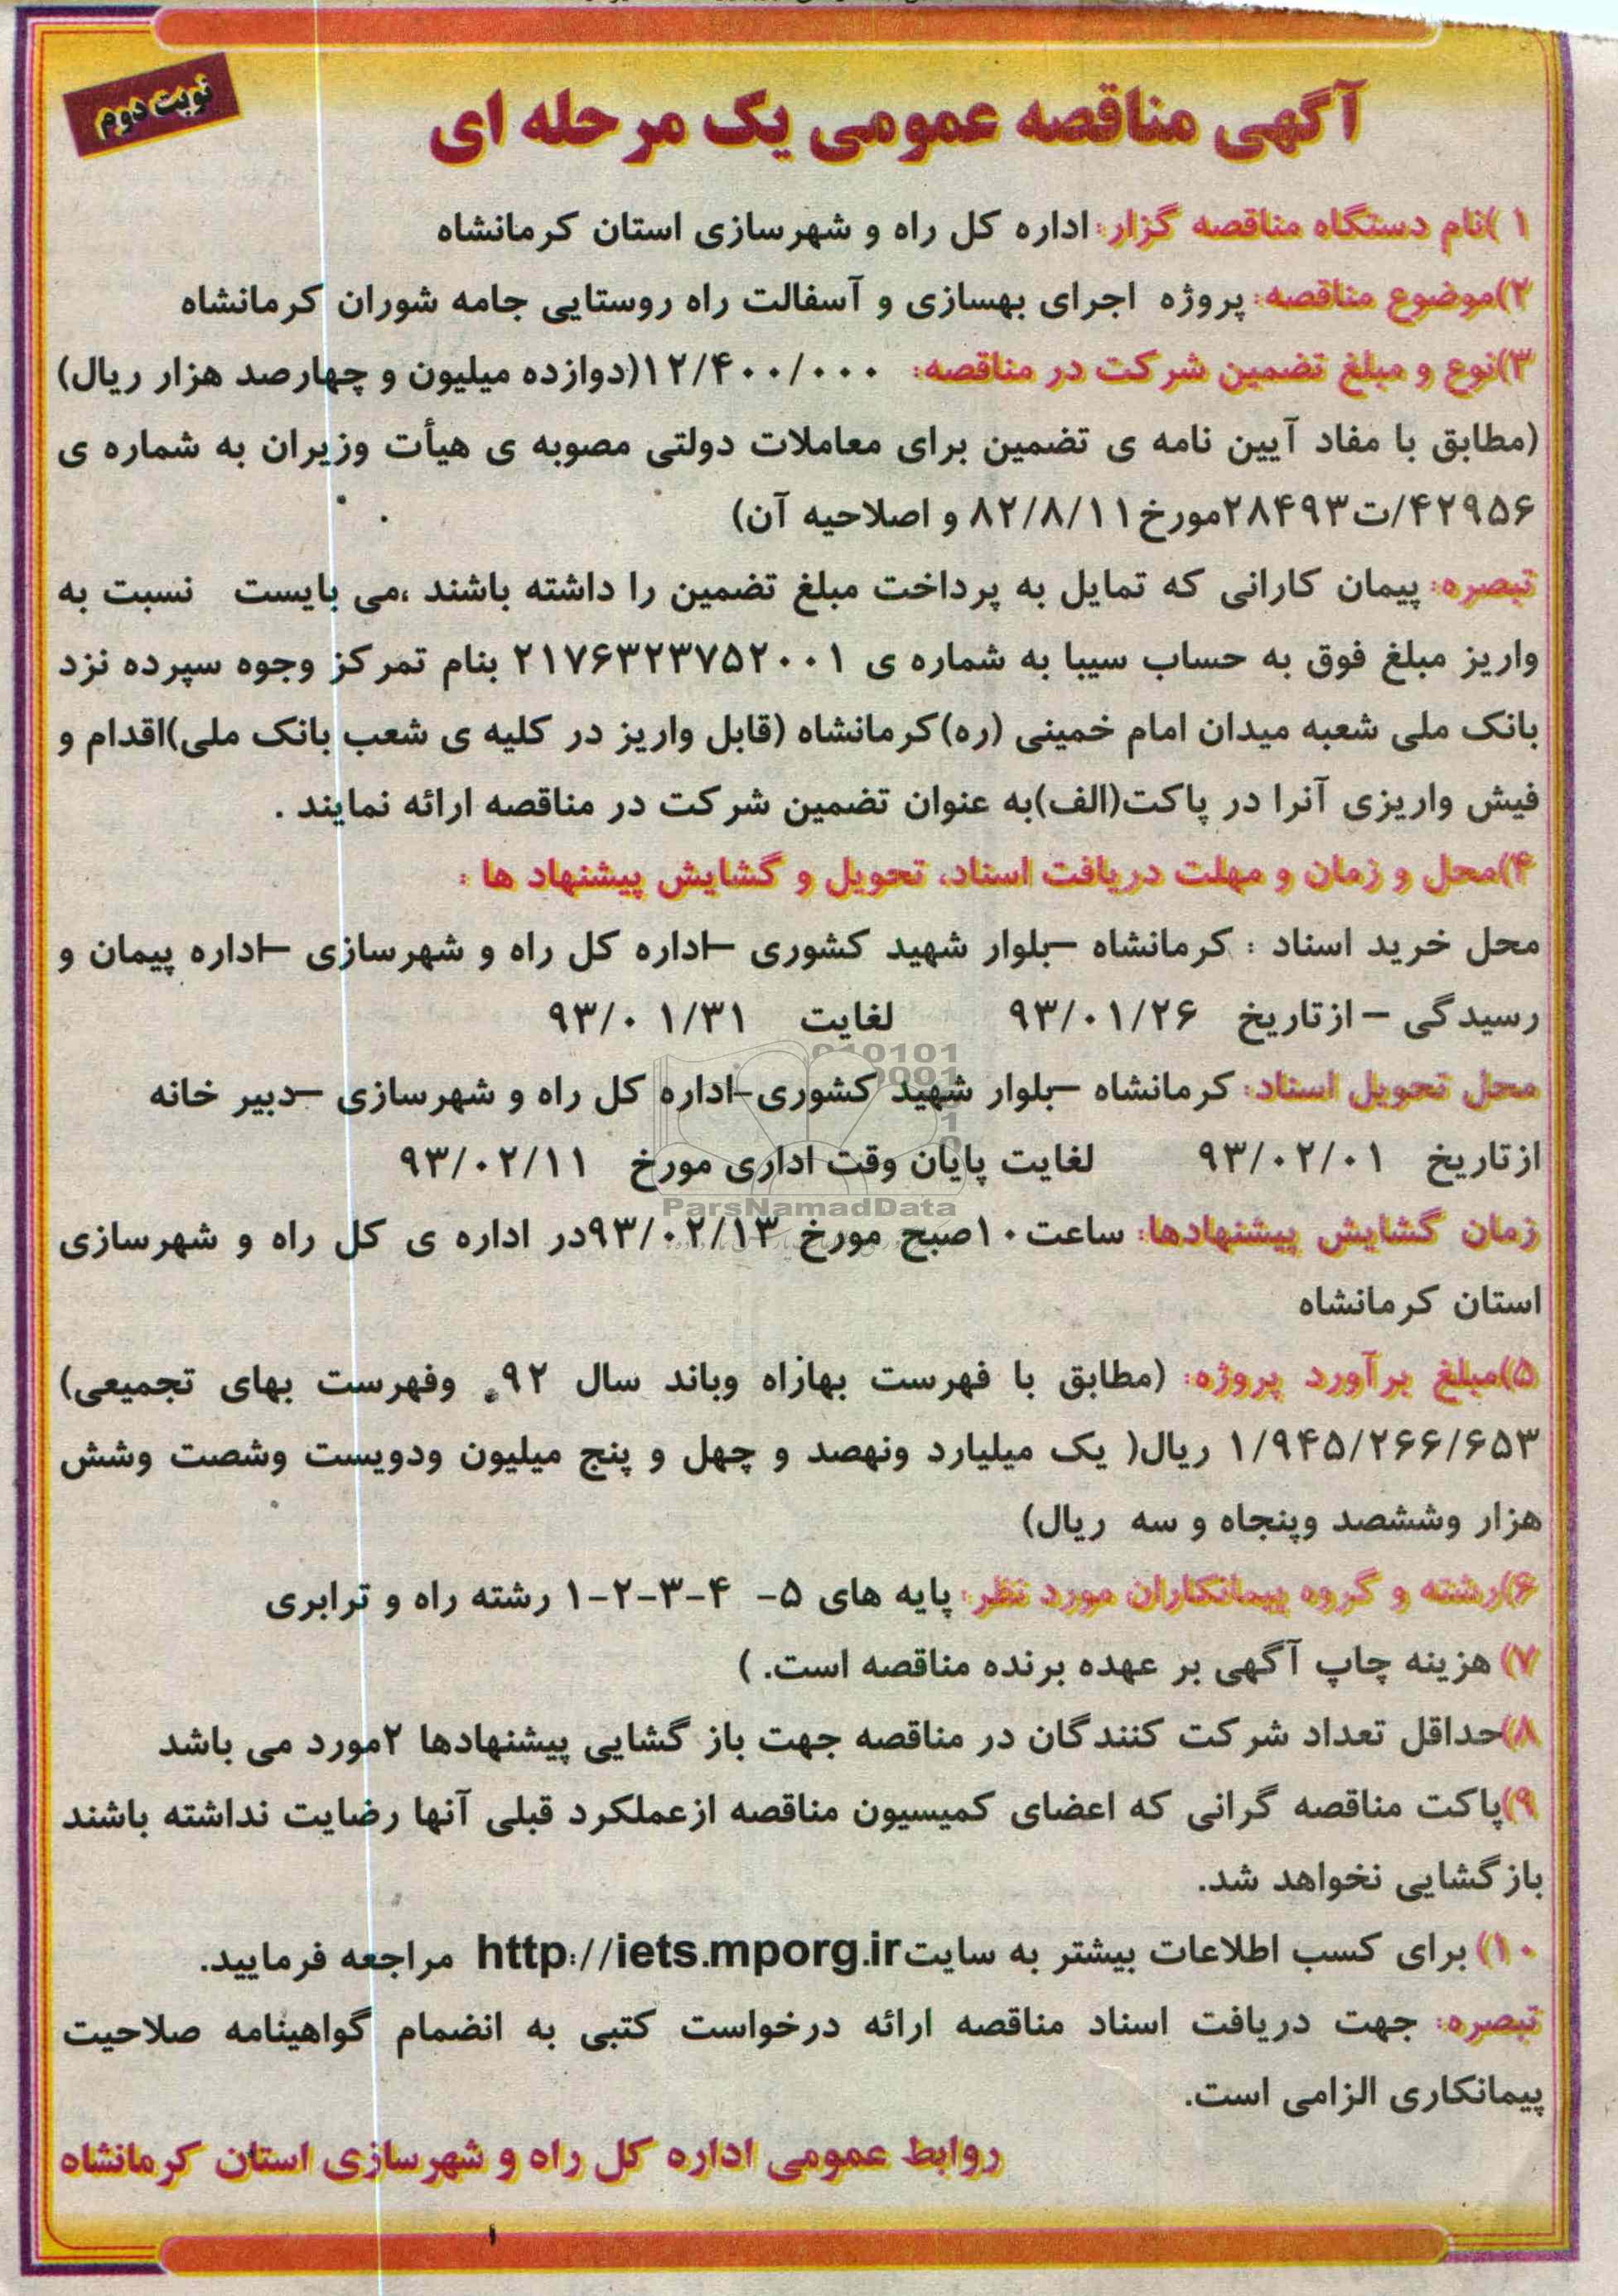 نوبت دوم
آگهی مناقصه عمومی یک مرحله ای
۱)نام دستگاه مناقصه گزار: اداره کل راه و شهرسازی استان کرمانشاه
۲)موضوع مناقصه: پروژه اجرای بهسازی و آسفالت راه روستایی جامه شوران کرمانشاه
۳)نوع و مبلغ تضمین شرکت در مناقصه: ۱۲/۴۰۰/۰۰۰(دوازده میلیون و چهارصد هزار ریال)
(مطابق با مفاد آیین نامه ی تضمین برای معاملات دولتی مصوبه ی هیأت وزیران به شماره ی
۴۲۹۵۶/ت۲۸۴۹۳مورخ۸۲/۸/۱۱ و اصلاحیه آن)
تبصره: پیمان کارانی که تمایل به پرداخت مبلغ تضمین را داشته باشند ،می بایست نسبت به
واریز مبلغ فوق به حساب سیبا به شماره ی ۲۱۷۶۳۲۳۷۵۲۰۰۱ بنام تمرکز وجوه سپرده نزد
بانک ملی شعبه میدان امام خمینی (ره)کرمانشاه (قابل واریز در کلیه ی شعب بانک ملی)اقدام و
فیش واریزی آنرا در پاکت(الف)به عنوان تضمین شرکت در مناقصه ارائه نمایند .
۴)محل و زمان و مهلت دریافت اسناد، تحویل و گشایش پیشنهاد ها :
محل خرید اسناد : کرمانشاه –بلوار شهید کشوری –اداره کل راه و شهرسازی –اداره پیمان و
رسیدگی – ازتاریخ ۹۳/۰۱/۲۶ لغایت ۹۳/۰۱/۳۱
محل تحویل اسناد: کرمانشاه –بلوار شهید کشوری-اداره کل راه و شهرسازی –دبیر خانه
ازتاریخ ۹۳/۰۲/۰۱ لغایت پایان وقت اداری مورخ ۹۳/۰۲/۱۱
ParsNamadData
زمان گشایش پیشنهادها: ساعت۱۰صبح مورخ ۹۳/۰۲/۱۳در اداره ی کل راه و شهرسازی
استان کرمانشاه
۵)مبلغ برآورد پروژه: (مطابق با فهرست بهازاه وباند سال ۹۲ وفهرست بهای تجمیعی)
۱/۹۴۵/۲۶۶/۶۵۳ ریال( یک میلیارد ونهصد و چهل و پنج میلیون ودویست وشصت وشش
هزار وششصد وپنجاه و سه ریال)
۶)رشته و گروه پیمانکاران مورد نظر: پایه های ۵- ۴-۳-۲-۱ رشته راه و ترابری
۷) هزینه چاپ آگهی بر عهده برنده مناقصه است. )
۸)حداقل تعداد شرکت کنندگان در مناقصه جهت باز گشایی پیشنهادها ۲مورد می باشد
۹)پاکت مناقصه گرانی که اعضای کمیسیون مناقصه ازعملکرد قبلی آنها رضایت نداشته باشند
بازگشایی نخواهد شد.
۱۰) برای کسب اطلاعات بیشتر به سایتhttp://iets.mporg.ir مراجعه فرمایید.
تبصره: جهت دریافت اسناد مناقصه ارائه درخواست کتبی به انضمام گواهینامه صلاحیت
پیمانکاری الزامی است.
روابط عمومی اداره کل راه و شهرسازی استان کرمانشاه